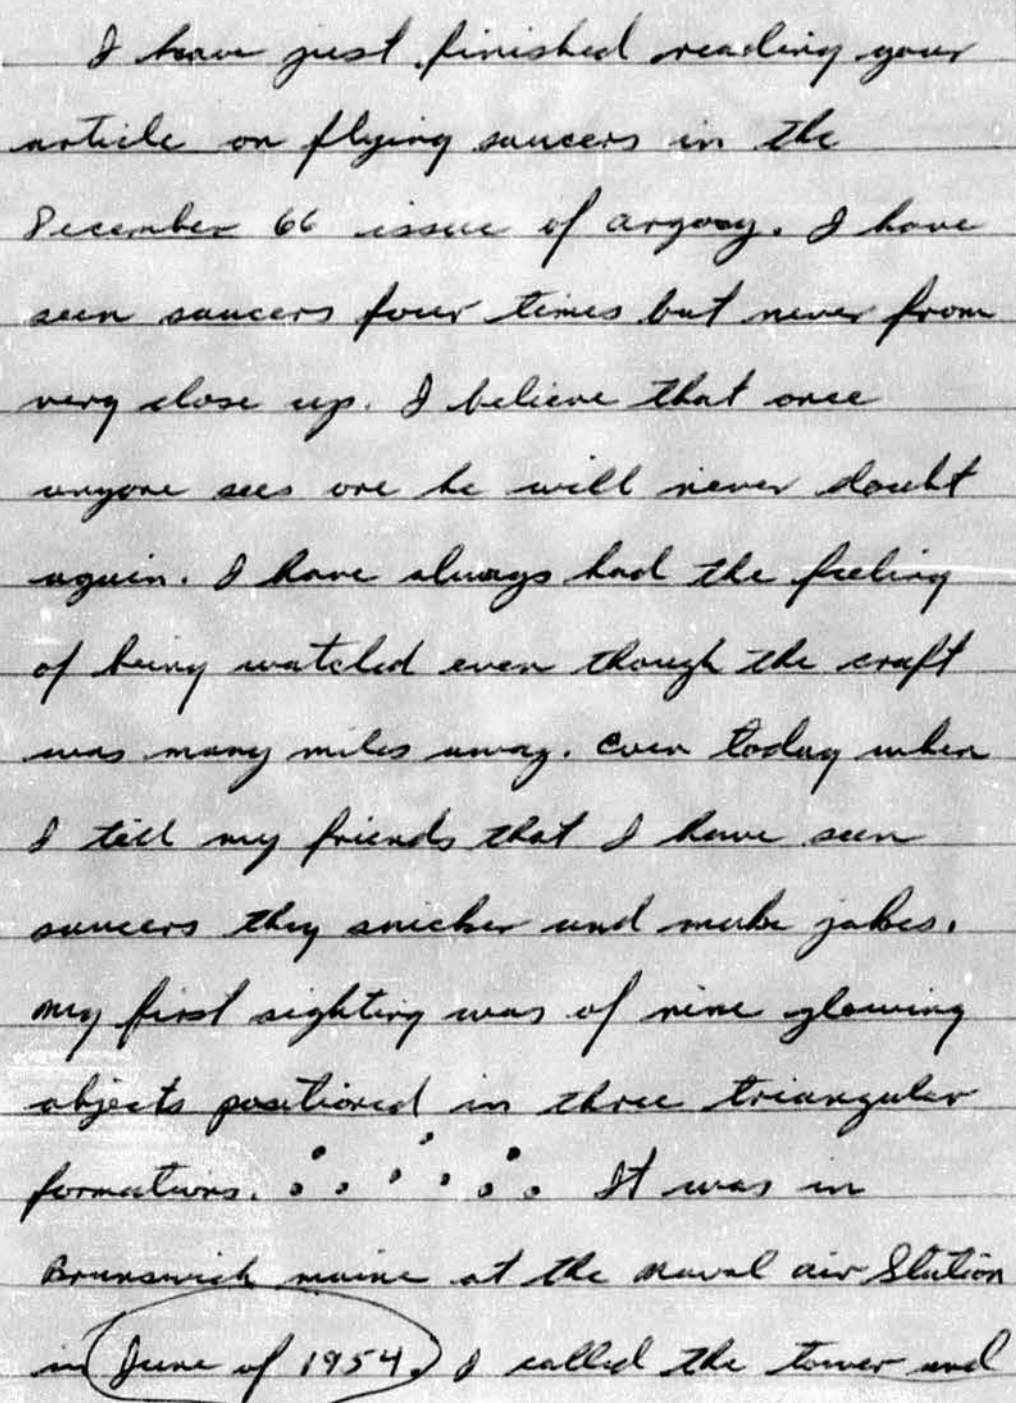 I have just finished reading your
article on flying saucers in the
December 66 issue of argosy. I have
seen saucers four times but never from
very close up. I believe that once
anyone sees one he will never doubt
again. I have always had the feeling
of being watched even though the craft
was many miles away. Even today when
I tell my friends that I have seen
saucers they snicker and make jokes.
my first sighting was of nine glowing
objects positioned in three triangular
formations. It was in
Brunswick maine at the naval air Station
in June of 1954. I called the tower and